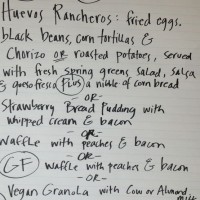 Huevos Rancheros: fried eggs,
black beans, corn tortillas &
Chorizo or roasted potatoes, served
with fresh spring greens salad, salsa
& queso fresco PLUS a nibble of corn bread
-OR-
Strawberry Bread Pudding with
whipped cream & bacon
-OR-
Waffle with peaches & bacon
-OR-
GF waffle with peaches & bacon
-OR-
Vegan Granola with Cow or Almond
milk